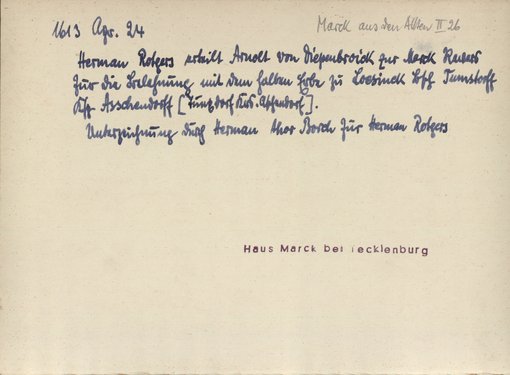 1613 Apr. 24
Marck aus den Akten II 26
Herman Rotgers erhilt Arnolt von Diepenbroick zur Marck Revers
für die Belehnung mit dem halben Erbe zu Loesinck Bsch. Tumstorff
Ksp. Asschendorff [Tunxdorf Krs. Aschendorf].
Unterzeichnung durch Herman thor Borch für Herman Rotgers
Haus Marck bei Tecklenburg